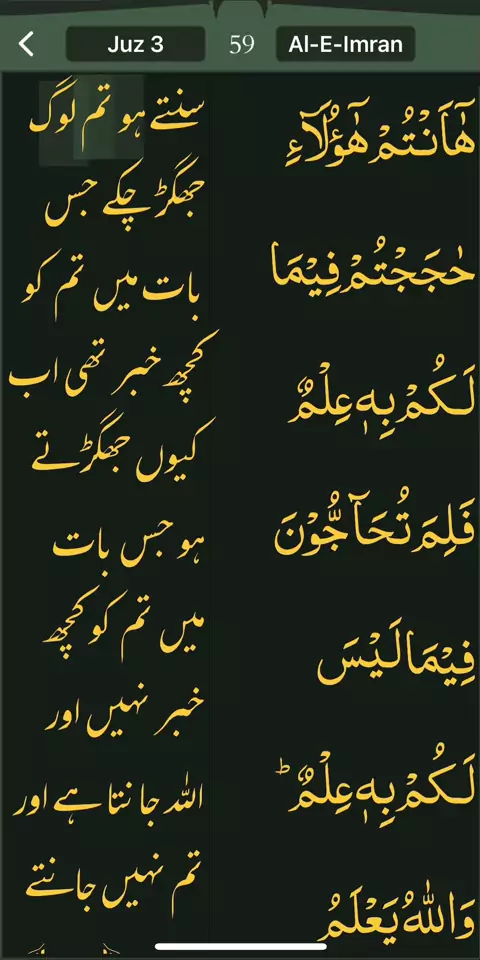 Juz 3
59
Al-E-Imran
هٰۤاَنْتُمْ هٰۤؤُلَآءِ
حٰجَجْتُمْ فِيْمَا
لَكُمْ بِهٖ عِلْمٌ
فَلِمَ تُحَآجُّوْنَ
فِيْمَا لَيْسَ
لَكُمْ بِهٖ عِلْمٌ ؕ
وَاللّٰهُ يَعْلَمُ
سنتے ہو تم لوگ
جھگڑ چکے جس
بات میں تم کو
کچھ خبر تھی اب
کیوں جھگڑتے
ہو جس بات
میں تم کو کچھ
خبر نہیں اور
اللہ جانتا ہے اور
تم نہیں جانتے